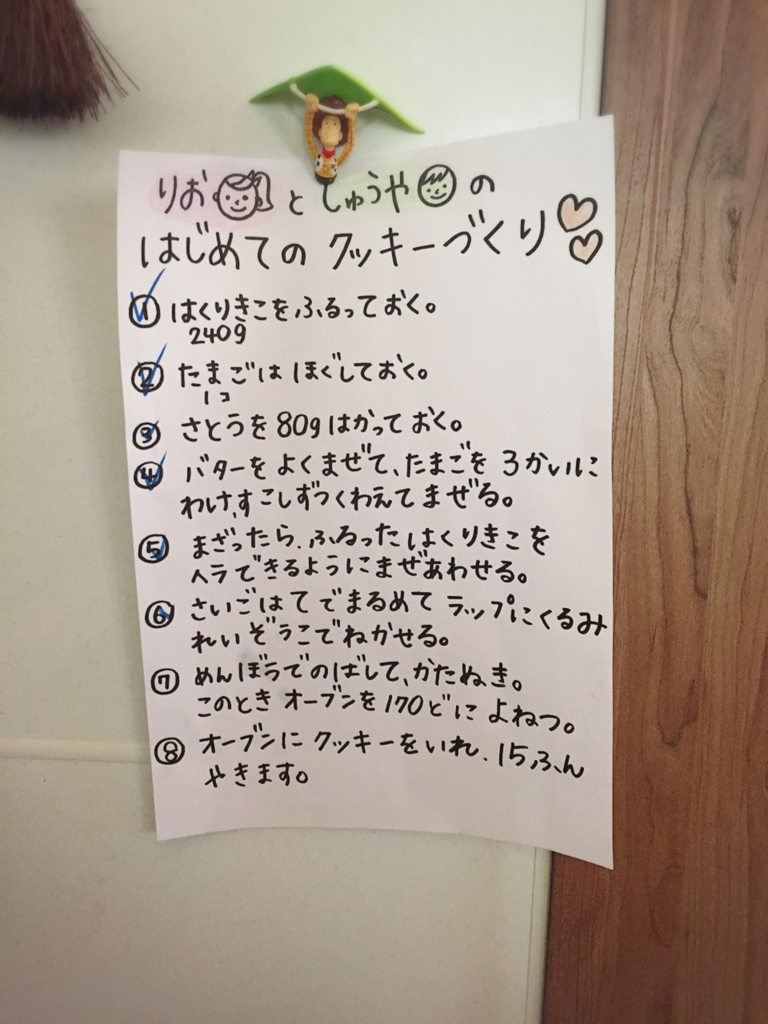 りおとしゅうやの
はじめてのクッキーづくり
① はくりきこをふるっておく。
240g
② たまごはほぐしておく。
1コ
③ さとうを80gはかっておく。
④ バターをよくまぜて、たまごを3かいに
わけ、すこしずつくわえてまぜる。
⑤ まざったら、ふるったはくりきこを
ヘラできるようにまぜあわせる。
⑥ さいごはてでまるめてラップにくるみ
れいぞうこでねかせる。
⑦ めんぼうでのばして、かたぬき。
このときオーブンを170どによねつ。
⑧ オーブンにクッキーをいれ、15ふん
やきます。